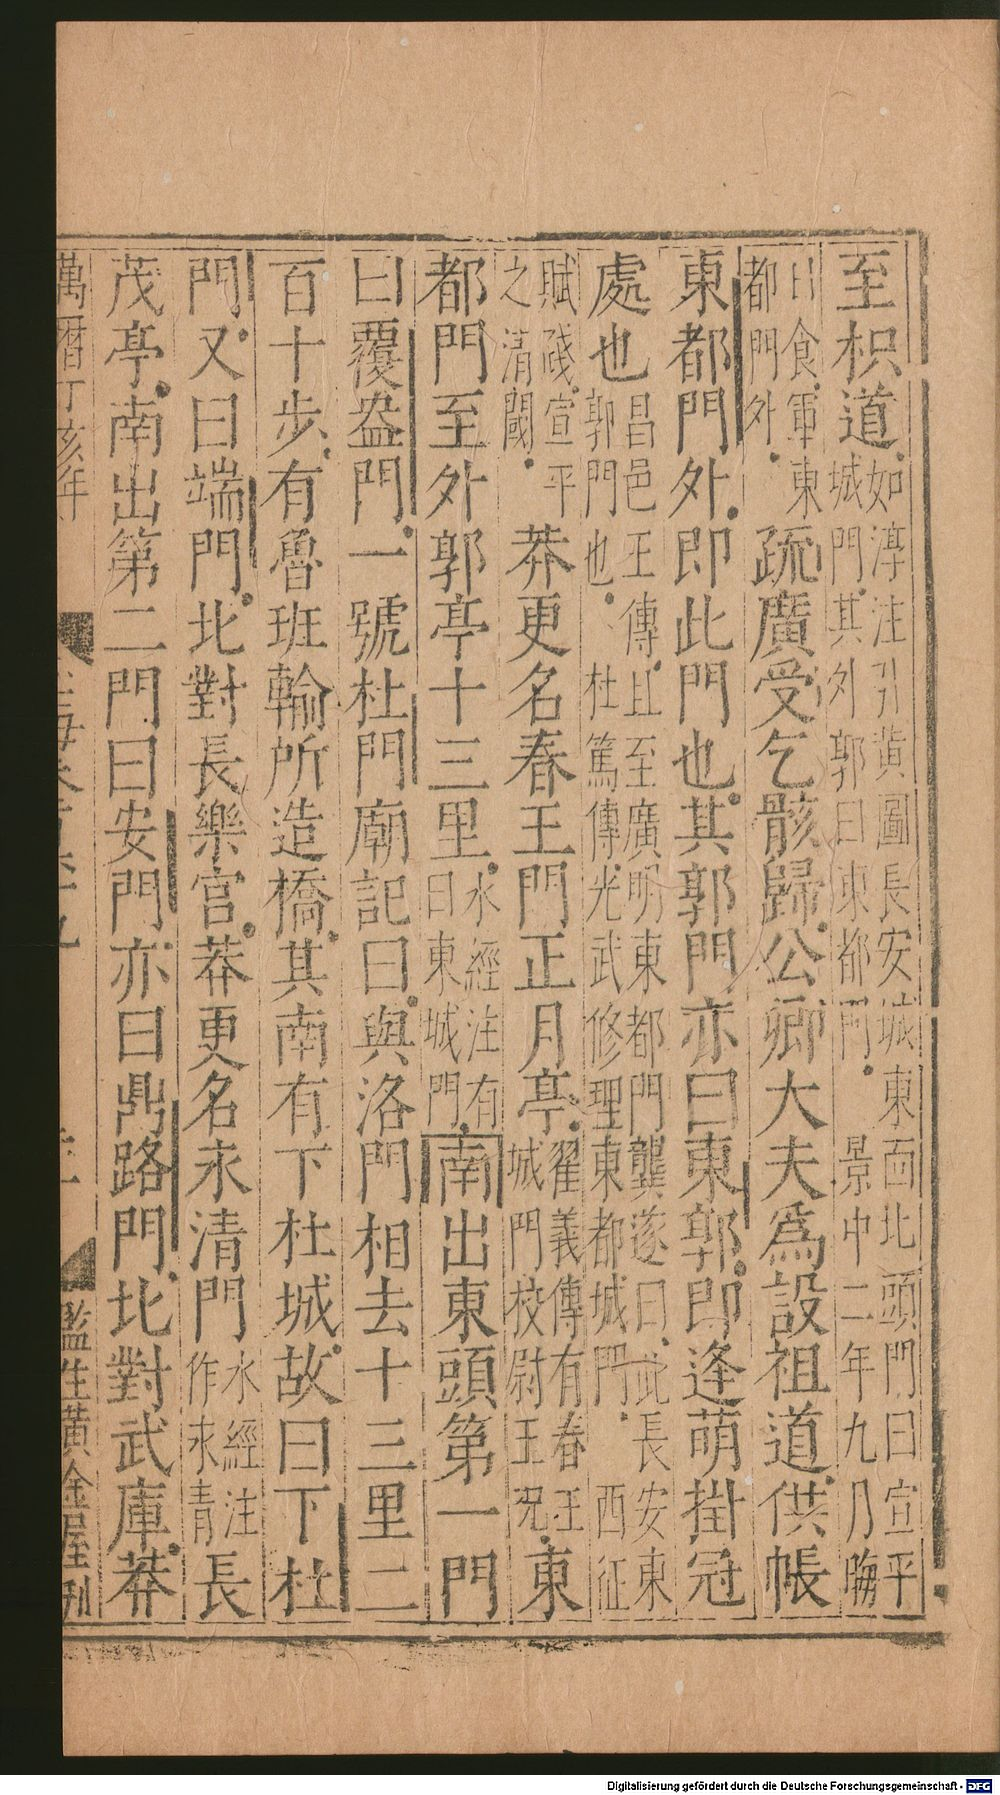 至枳道如淳注引黄圖長安城東面北頭門曰宣平城門其外郭曰東都門景中二年九月晦
日食軍東都門外疏廣受乞骸歸公卿大夫爲設祖道供帳
東都門外即此門也其郭門亦曰東郭即逢萌掛冠
處也昌邑王傳且至廣明東都門龔遂曰此長安東郭門也杜篤傳光武修理東都城門西征
賦踐宣平之清閾莽更名春王門正月亭翟義傳有春王城門校尉王況東
都門至外郭亭十三里水經注有曰東城門南出東頭第一門
曰覆盎門一號杜門廟記曰與洛門相去十三里二
百十步有魯班輸所造橋其南有下杜城故曰下杜
門又曰端門北對長樂宮莽更名永清門水經注作永青長
茂亭南出第二門曰安門亦曰鼎路門北對武庫莽
萬曆丁亥年 監生黄金璽刊
Digitalisierung gefördert durch die Deutsche Forschungsgemeinschaft - DFG